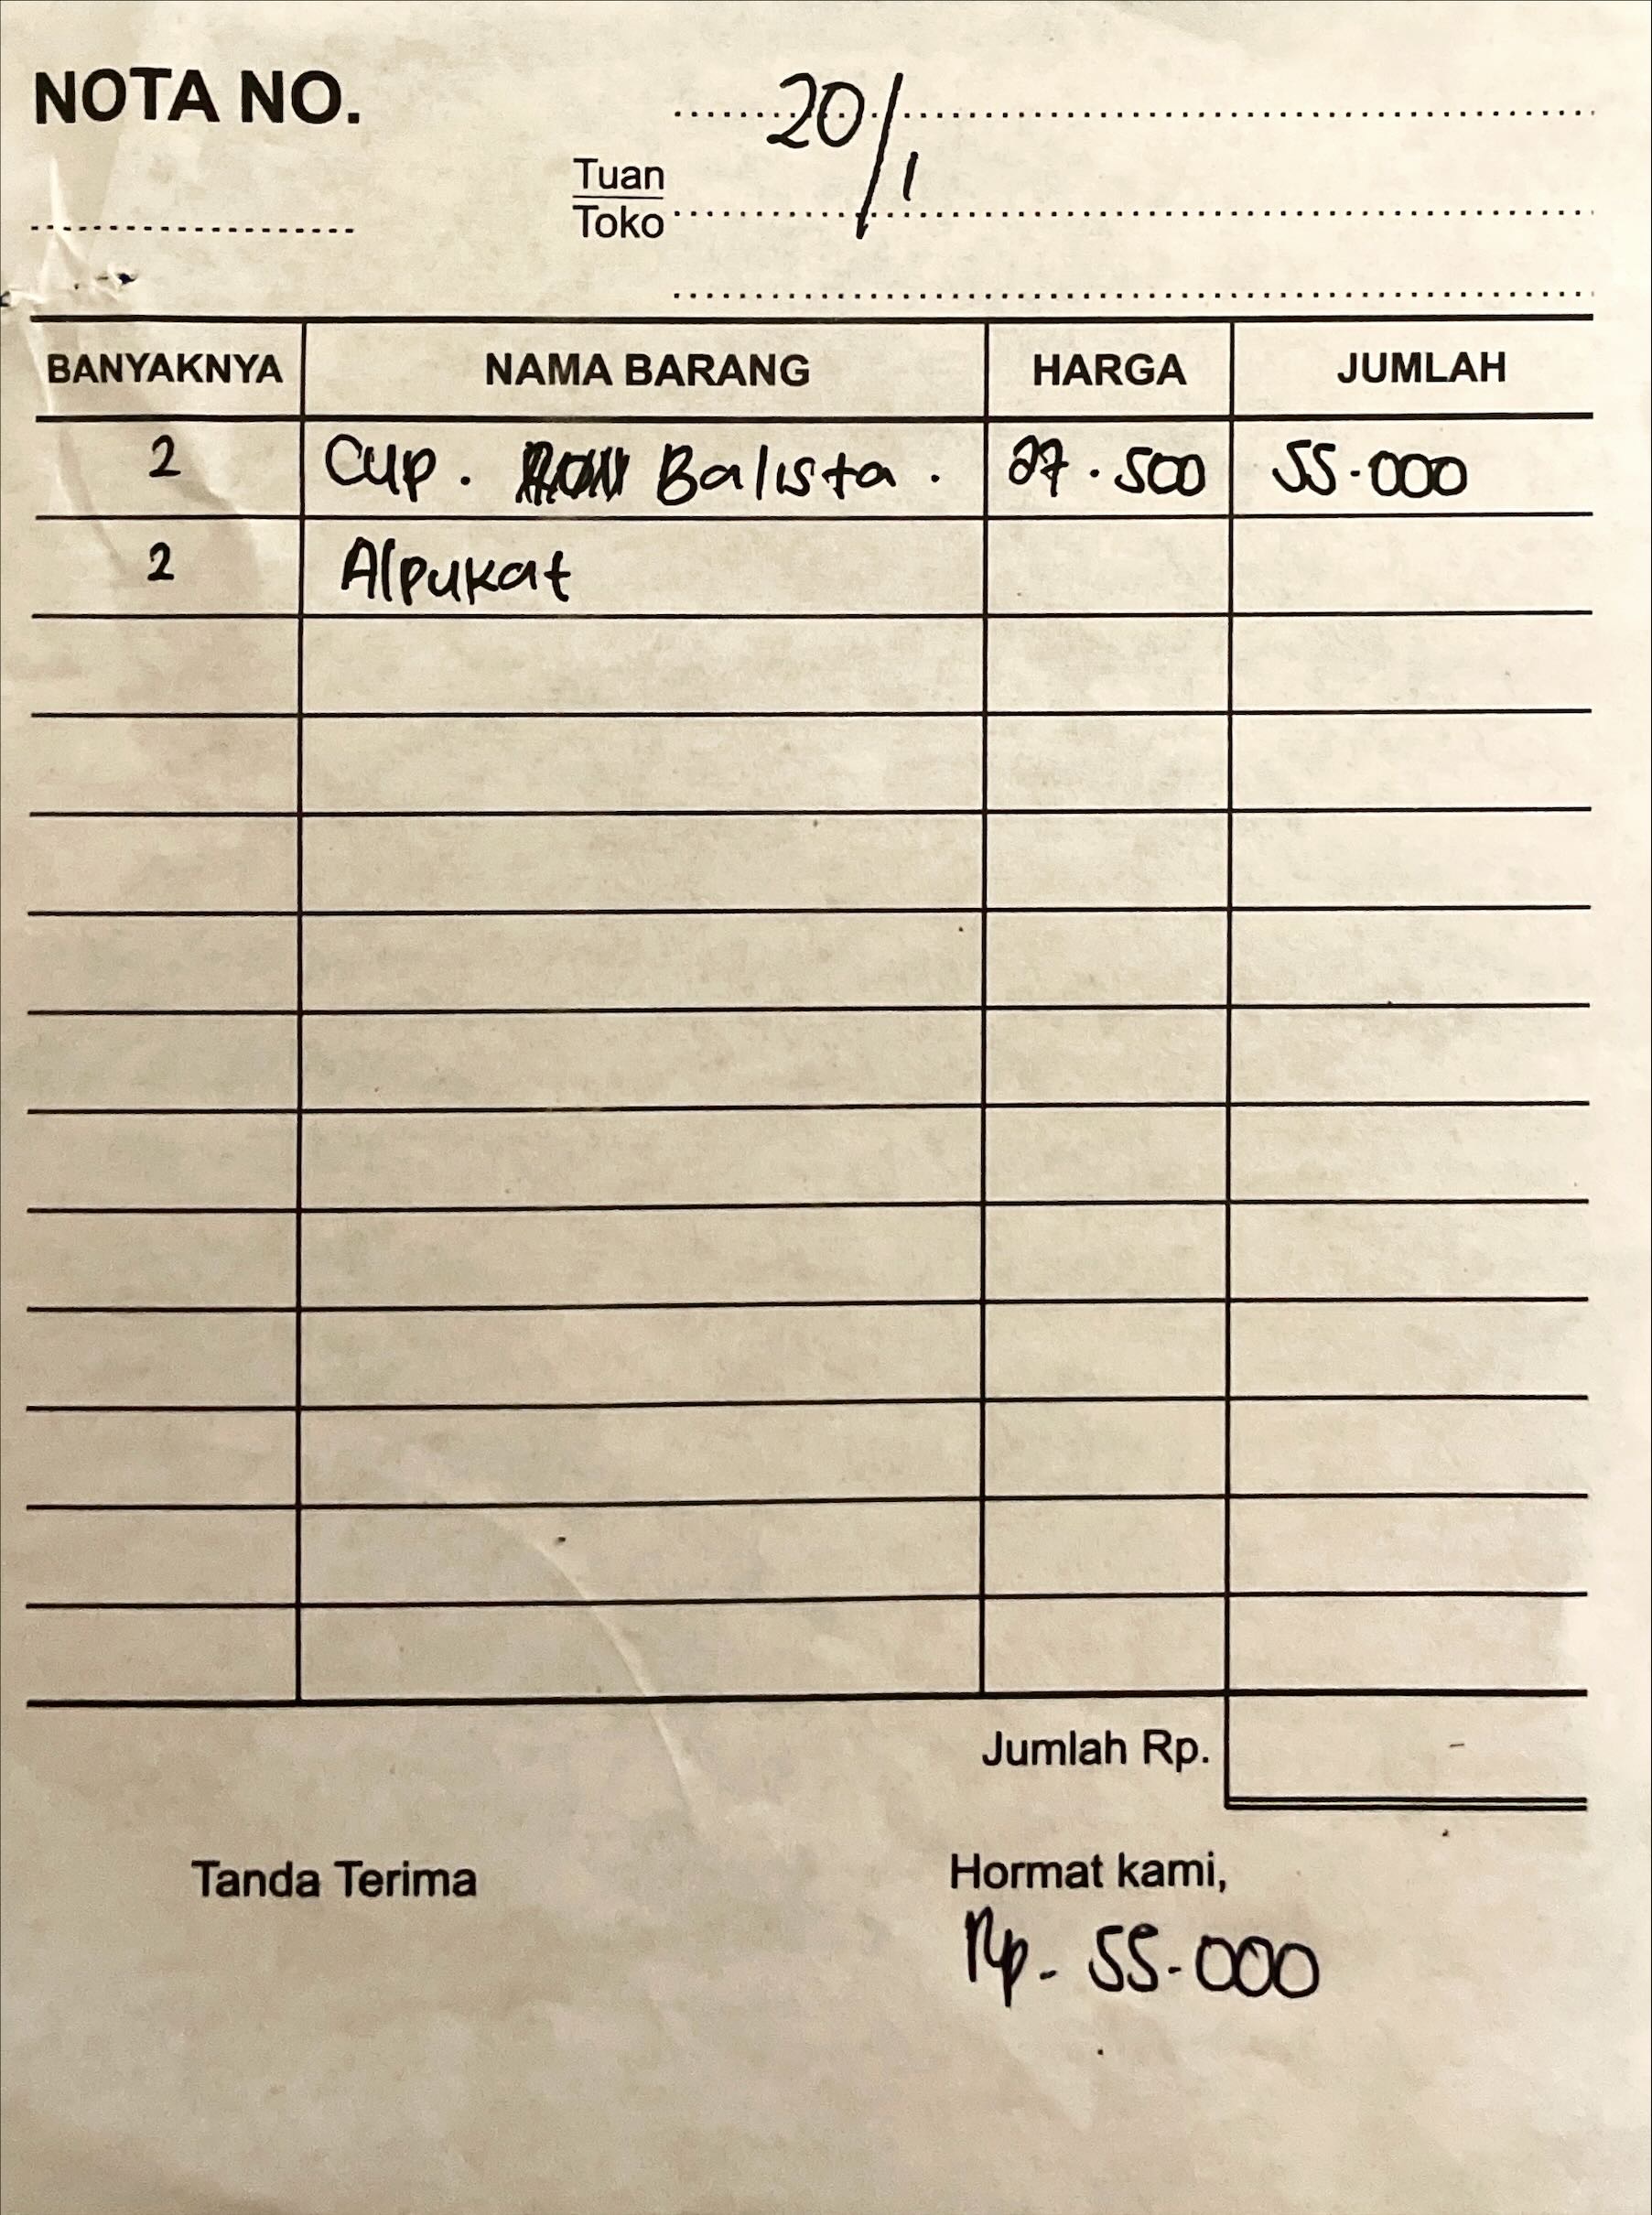 NOTA NO.
20/1
Tuan
Toko
BANYAKNYA NAMA BARANG HARGA JUMLAH
2 Cup. Balista. 27.500 55.000
2 Alpukat
Jumlah Rp. -
Tanda Terima Hormat kami,
Rp- 55.000